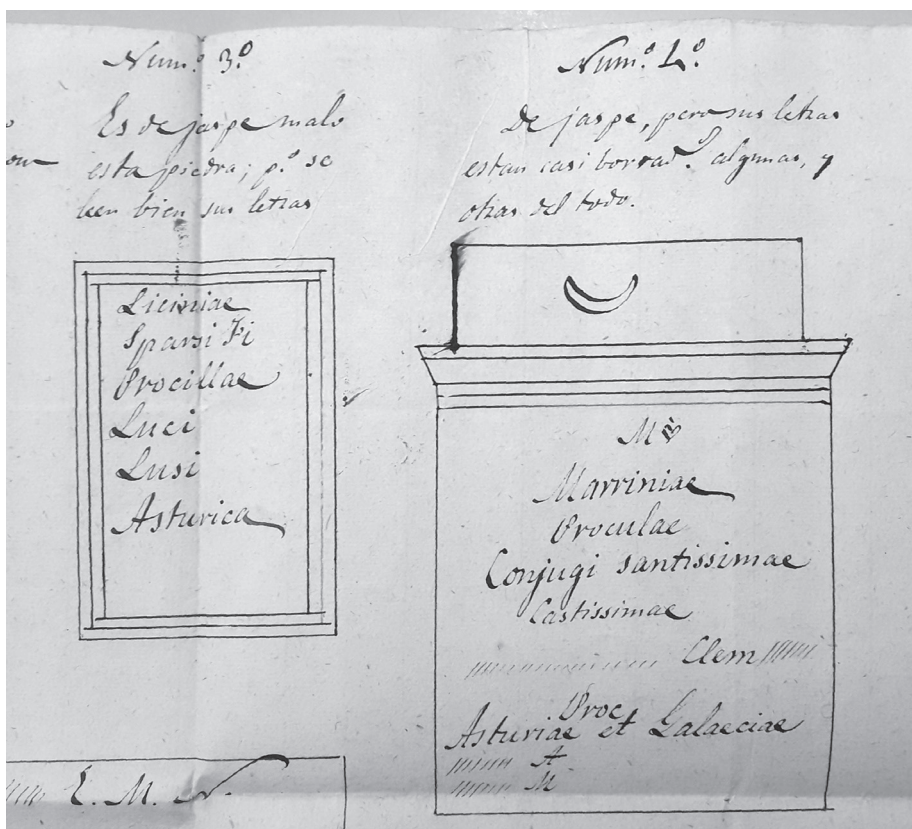 Num.º 3º
Es de jaspe malo
esta piedra; p.º se
leen bien sus letras
Liciniae
Sparsi Fi
Procillae
Luci
Lusi
Asturica
E. M. N.
Num.º 4º
De jaspe, pero sus letras
estan casi borrad.s algunas, y
otras del todo.
M
Marriniae
Proculae
Conjugi santissimae
Castissimae
Clem
Proc
Asturiae et Galaeciae
A
M